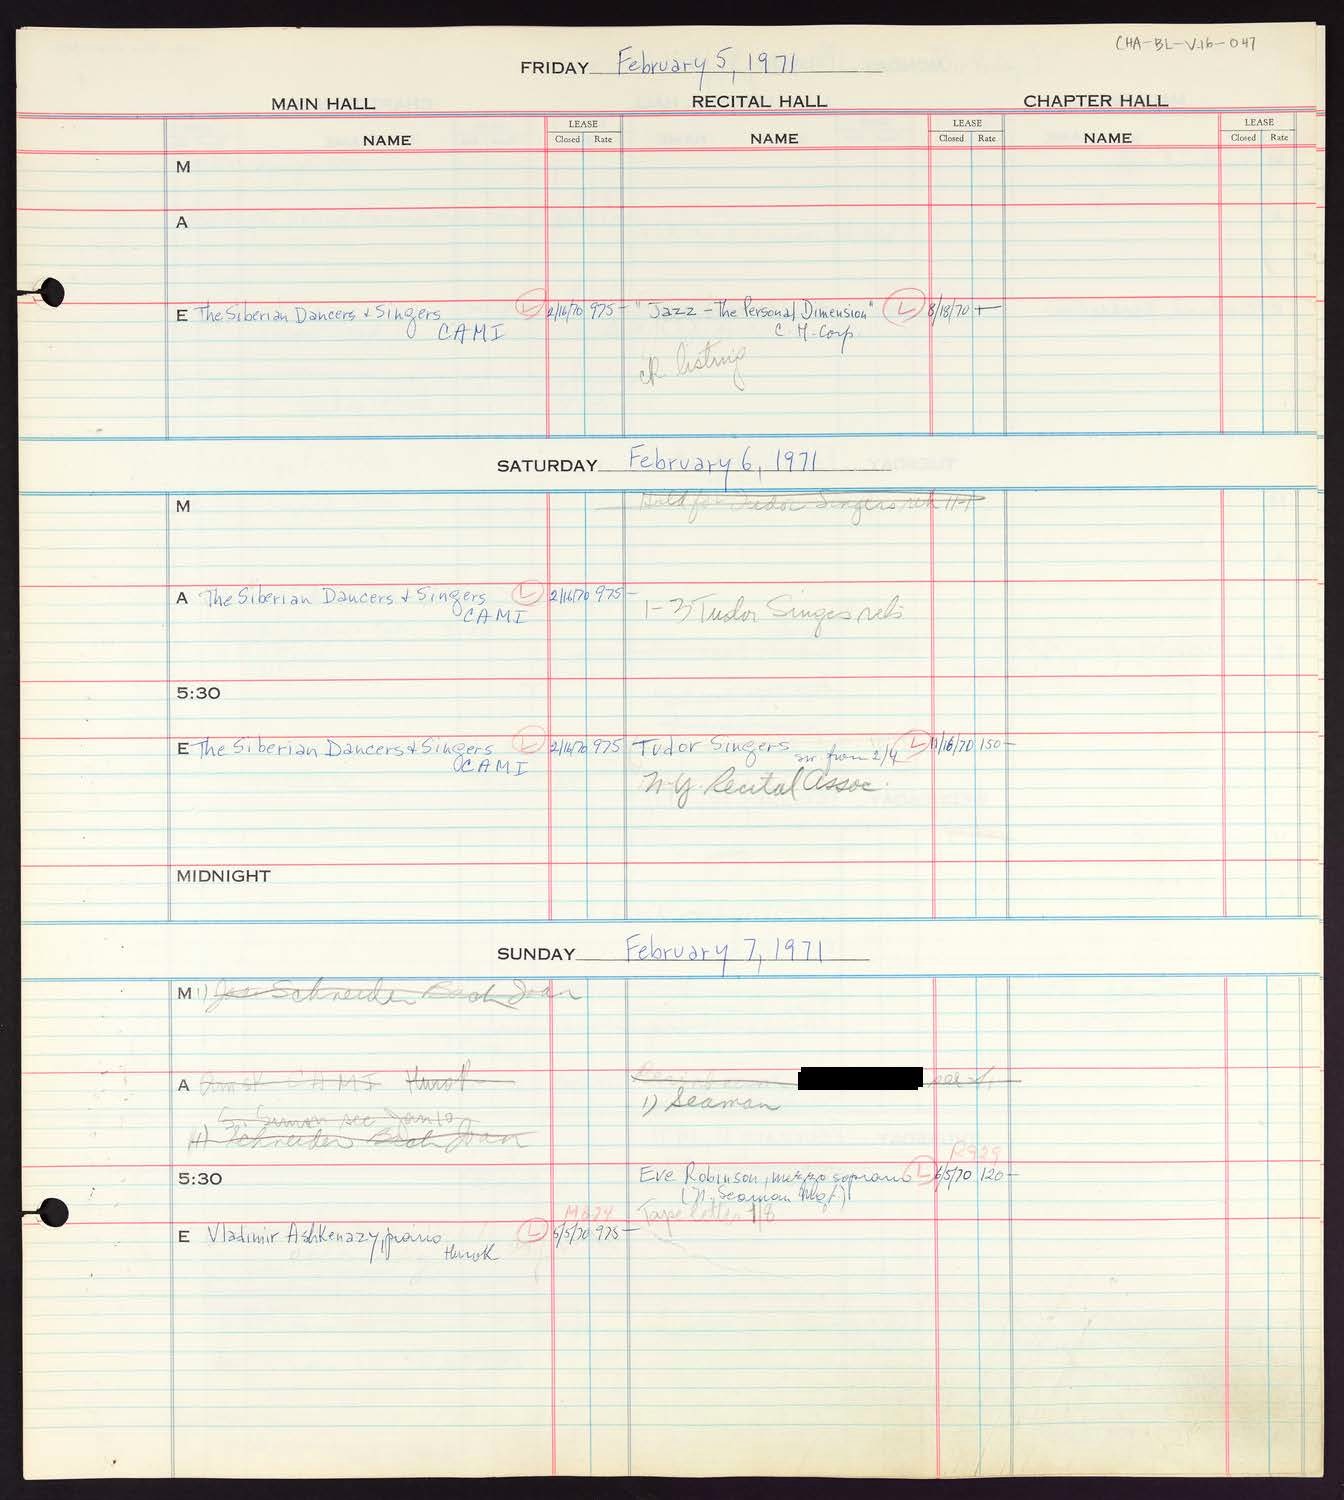 CHA-BL-V.16-047
FRIDAY February 5, 1971
MAIN HALL RECITAL HALL CHAPTER HALL
LEASE LEASE LEASE
NAME Closed Rate NAME Closed Rate NAME Closed Rate
M
A
E The Siberian Dancers & Singers L 2/16/70 975- "Jazz - The Personal Dimension" L 8/18/70 +
CAMI C. H. Corp.
listing
SATURDAY February 6, 1971
M Hold for Tudor Singers reh 11-1
A The Siberian Dancers & Singers L 2/16/70 975- 1-3 Tudor Singers reh
CAMI
5:30
E The Siberian Dancers & Singers L 2/16/70 975 Tudor Singers sw. from 2/4 L 11/16/70 150-
CAMI N.Y. Recital Assoc.
MIDNIGHT
SUNDAY February 7, 1971
M 1) Schneider Bach Joan
A CAMI Hurok
1) Seaman
Simon see Jan 10
Schneider Bach Joan
R929
5:30 Eve Robinson, mezzo soprano L 6/5/70 120-
(N. Seaman Mgt)
Tape letter 1/8
M674
E Vladimir Ashkenazy, piano L 5/5/70 975-
Hurok